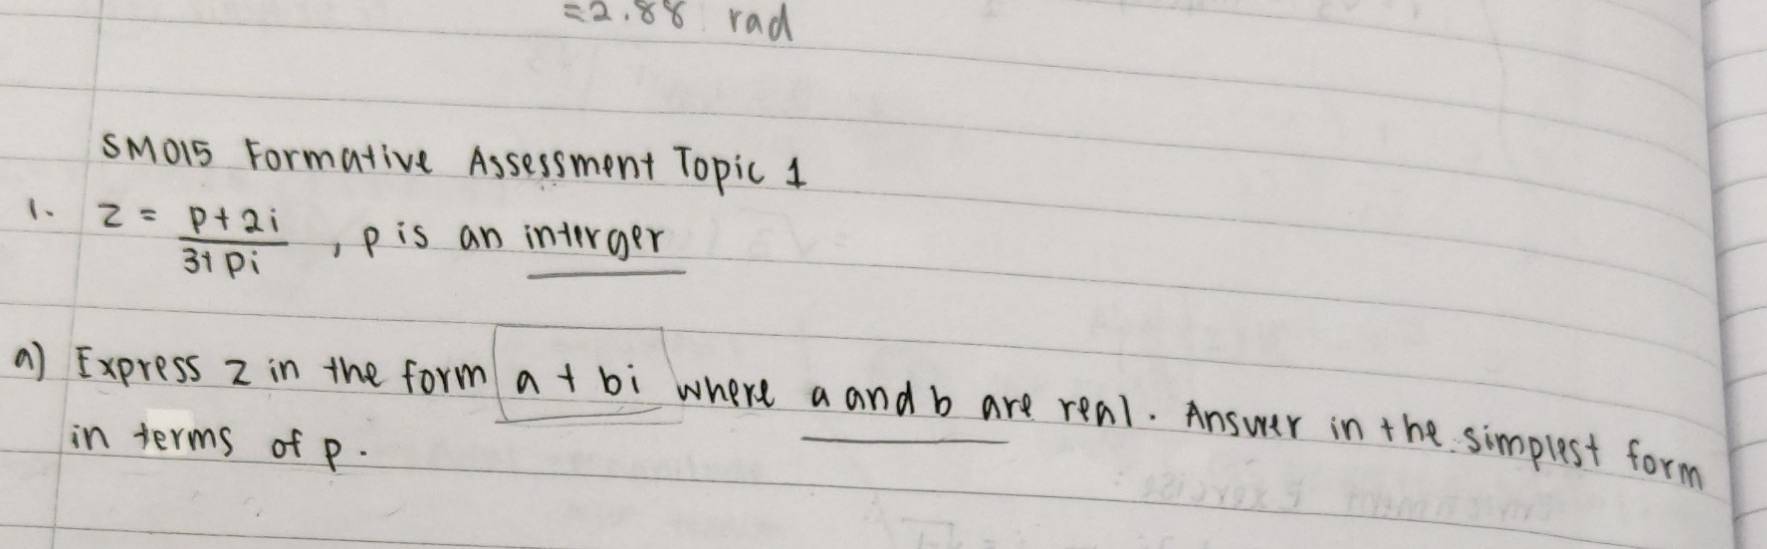 =2.88 rad
SM015 Formative Assessment Topic 1
1. z = p+2i / 3+pi , p is an interger
a) Express z in the form a + bi where a and b are real. Answer in the simplest form
in terms of p.